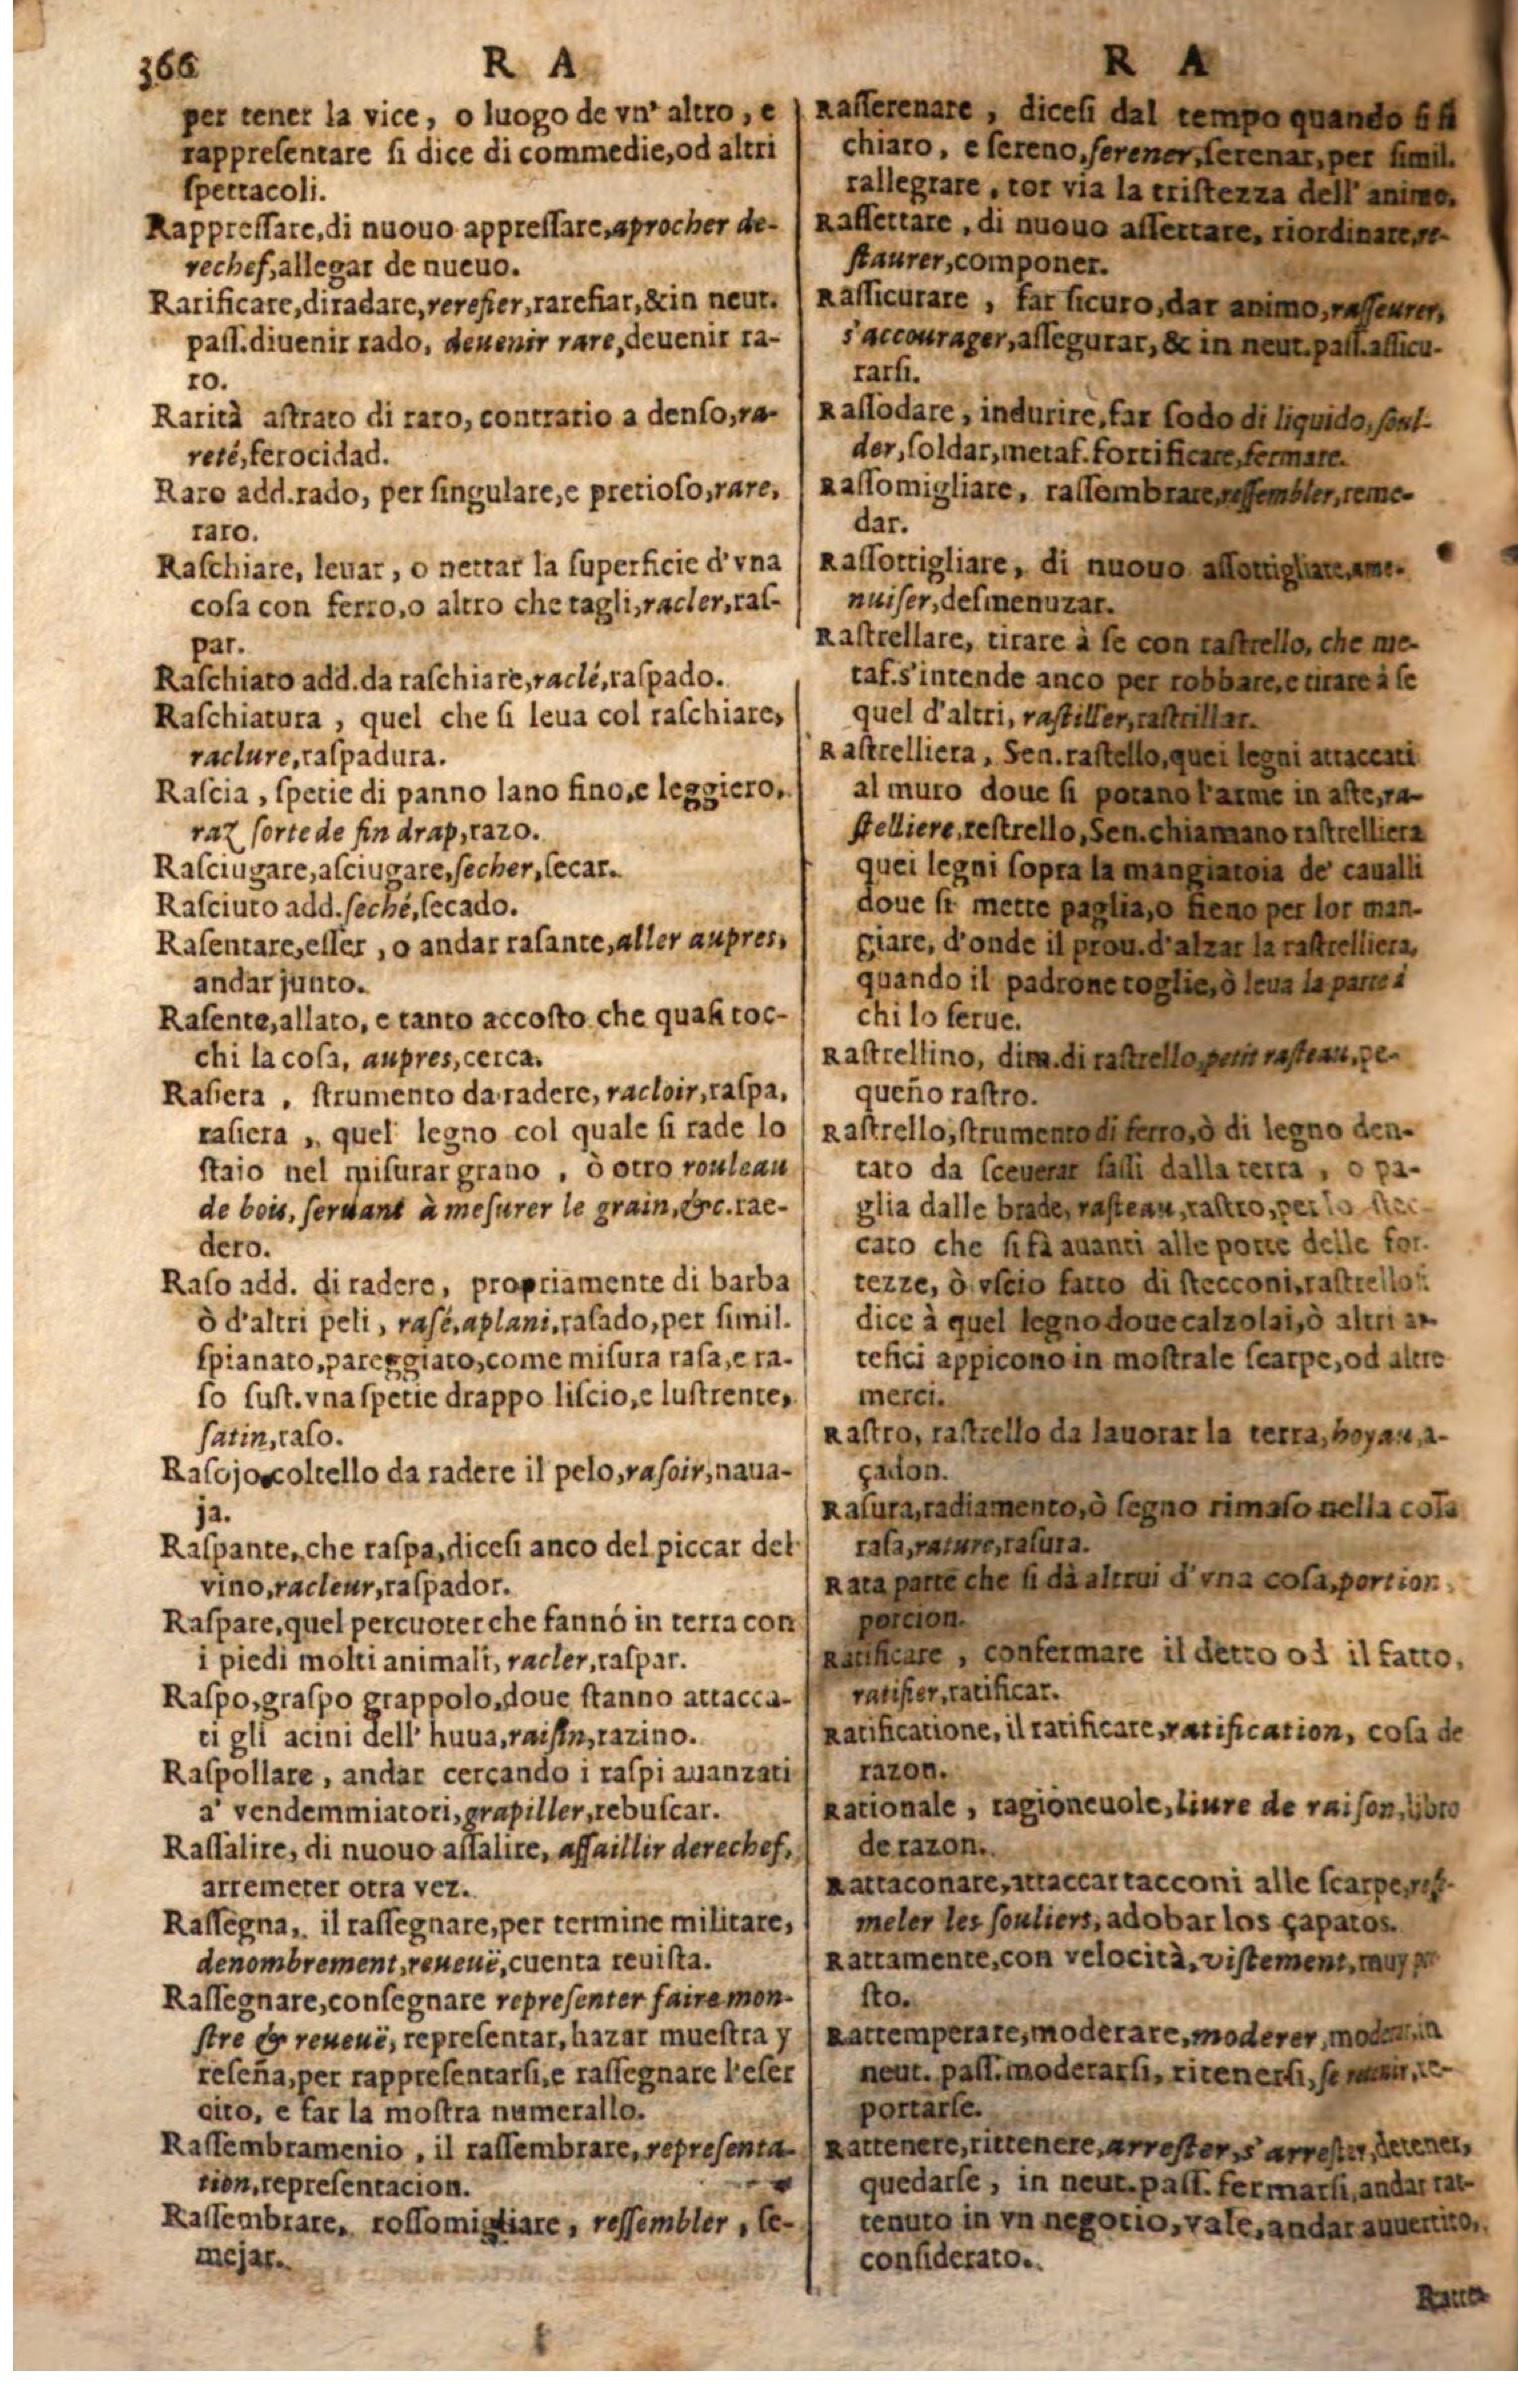 366
R A
per tener la vice, o luogo de vn' altro, e
rappreſentare ſi dice di commedie, od altri
ſpettacoli.
Rappreſſare, di nuouo appreſſare, aprocher de-
rechef, allegar de nueuo.
Rarificare, diradare, rerefier, rarefiar, & in neut.
paſſ. diuenir rado, deuenir rare, deuenir ra-
ro.
Rarità aſtrato di raro, contrario a denſo, ra-
reté, ferocidad.
Raro add. rado, per ſingulare, e pretioſo, rare,
raro.
Raſchiare, leuar, o nettar la ſuperficie d'vna
coſa con ferro, o altro che tagli, racler, raſ-
par.
Raſchiato add. da raſchiare, raclé, raſpado.
Raſchiatura, quel che ſi leua col raſchiare,
raclure, raſpadura.
Raſcia, ſpetie di panno lano fino, e leggiero,
raz ſorte de fin drap, razo.
Raſciugare, aſciugare, ſecher, ſecar.
Raſciuto add. ſeché, ſecado.
Raſentare, eſſer, o andar raſante, aller aupres,
andar junto.
Raſente, allato, e tanto accoſto che quaſi toc-
chi la coſa, aupres, cerca.
Raſiera, ſtrumento da radere, racloir, raſpa,
raſiera, quel legno col quale ſi rade lo
ſtaio nel miſurar grano, ò otro rouleau
de bois, ſeruant à meſurer le grain, &c. rae-
dero.
Raſo add. di radere, propriamente di barba
ò d'altri peli, raſé, aplani, raſado, per ſimil.
ſpianato, pareggiato, come miſura raſa, e ra-
ſo ſuſt. vna ſpetie drappo liſcio, e luſtrente,
ſatin, raſo.
Raſojo, coltello da radere il pelo, raſoir, naua-
ja.
Raſpante, che raſpa, diceſi anco del piccar del
vino, racleur, raſpador.
Raſpare, quel percuoter che fanno in terra con
i piedi molti animali, racler, raſpar.
Raſpo, graſpo grappolo, doue ſtanno attacca-
ti gli acini dell' huua, raiſin, razino.
Raſpollare, andar cercando i raſpi auanzati
a' vendemmiatori, grapiller, rebuſcar.
Raſſalire, di nuouo aſſalire, aſſaillir derechef,
arremeter otra vez.
Raſſegna, il raſſegnare, per termine militare,
denombrement, reueuë, cuenta reuiſta.
Raſſegnare, conſegnare repreſenter faire mon-
ſtre & reueuë, repreſentar, hazar mueſtra y
reſeña, per rappreſentarſi, e raſſegnare l'eſer
cito, e far la moſtra numerallo.
Raſſembramenio, il raſſembrare, repreſenta-
tion, repreſentacion.
Raſſembrare, roſſomigliare, reſſembler, ſe-
mejar.
R A
Raſſerenare, diceſi dal tempo quando ſi fà
chiaro, e ſereno, ſerener, ſerenar, per ſimil.
rallegrare, tor via la triſtezza dell' animo.
Raſſettare, di nuouo aſſettare, riordinare, re-
ſtaurer, componer.
Raſſicurare, far ſicuro, dar animo, raſſeurer,
s'accourager, aſſegurar, & in neut. paſſ. aſſicu-
rarſi.
Raſſodare, indurire, far ſodo di liquido, ſoul-
der, ſoldar, metaf. fortificare, fermare.
Raſſomigliare, raſſembrare, reſſembler, reme-
dar.
Raſſottigliare, di nuouo aſſottigliare, ame-
nuiſer, deſmenuzar.
Raſtrellare, tirare à ſe con raſtrello, che me-
taf. s'intende anco per robbare, e tirare à ſe
quel d'altri, raſtiller, raſtrillar.
Raſtrelliera, Sen. raſtello, quei legni attaccati
al muro doue ſi poſano l'arme in aſte, ra-
ſtelliere, reſtrello, Sen. chiamano raſtrelliera
quei legni ſopra la mangiatoia de' caualli
doue ſi mette paglia, o fieno per lor man-
giare, d'onde il prou. d'alzar la raſtrelliera,
quando il padrone toglie, ò leua la parte à
chi lo ſerue.
Raſtrellino, dim. di raſtrello, petit raſteau, pe-
queño raſtro.
Raſtrello, ſtrumento di ferro, ò di legno den-
tato da ſceuerar ſaſſi dalla terra, o pa-
glia dalle brade, raſteau, raſtro, per lo ſtec-
cato che ſi fà auanti alle porte delle for-
tezze, ò vſcio fatto di ſtecconi, raſtrello
dice à quel legno doue calzolai, ò altri ar-
tefici appicono in moſtra le ſcarpe, od altre
merci.
Raſtro, raſtrello da lauorar la terra, hoyau, a-
çadon.
Raſura, radiamento, ò ſegno rimaſo nella coſa
raſa, rature, raſura.
Rata parte che ſi dà altrui d'vna coſa, portion,
porcion.
Ratificare, confermare il detto od il fatto,
ratifier, ratificar.
Ratificatione, il ratificare, ratification, coſa de
razon.
Rationale, ragioneuole, liure de raiſon, libro
de razon.
Rattaconare, attaccar tacconi alle ſcarpe,
meler les ſouliers, adobar los çapatos.
Rattamente, con velocità, viſtement, muy
ſto.
Rattemperare, moderare, moderer, moderar, in
neut. paſſ. moderarſi, ritenerſi, ſe retenir, re-
portarſe.
Rattenere, rittenere, arreſter, s'arreſter, detener,
quedarſe, in neut. paſſ. fermarſi, andar rat-
tenuto in vn negotio, vale, andar auuertito,
conſiderato.